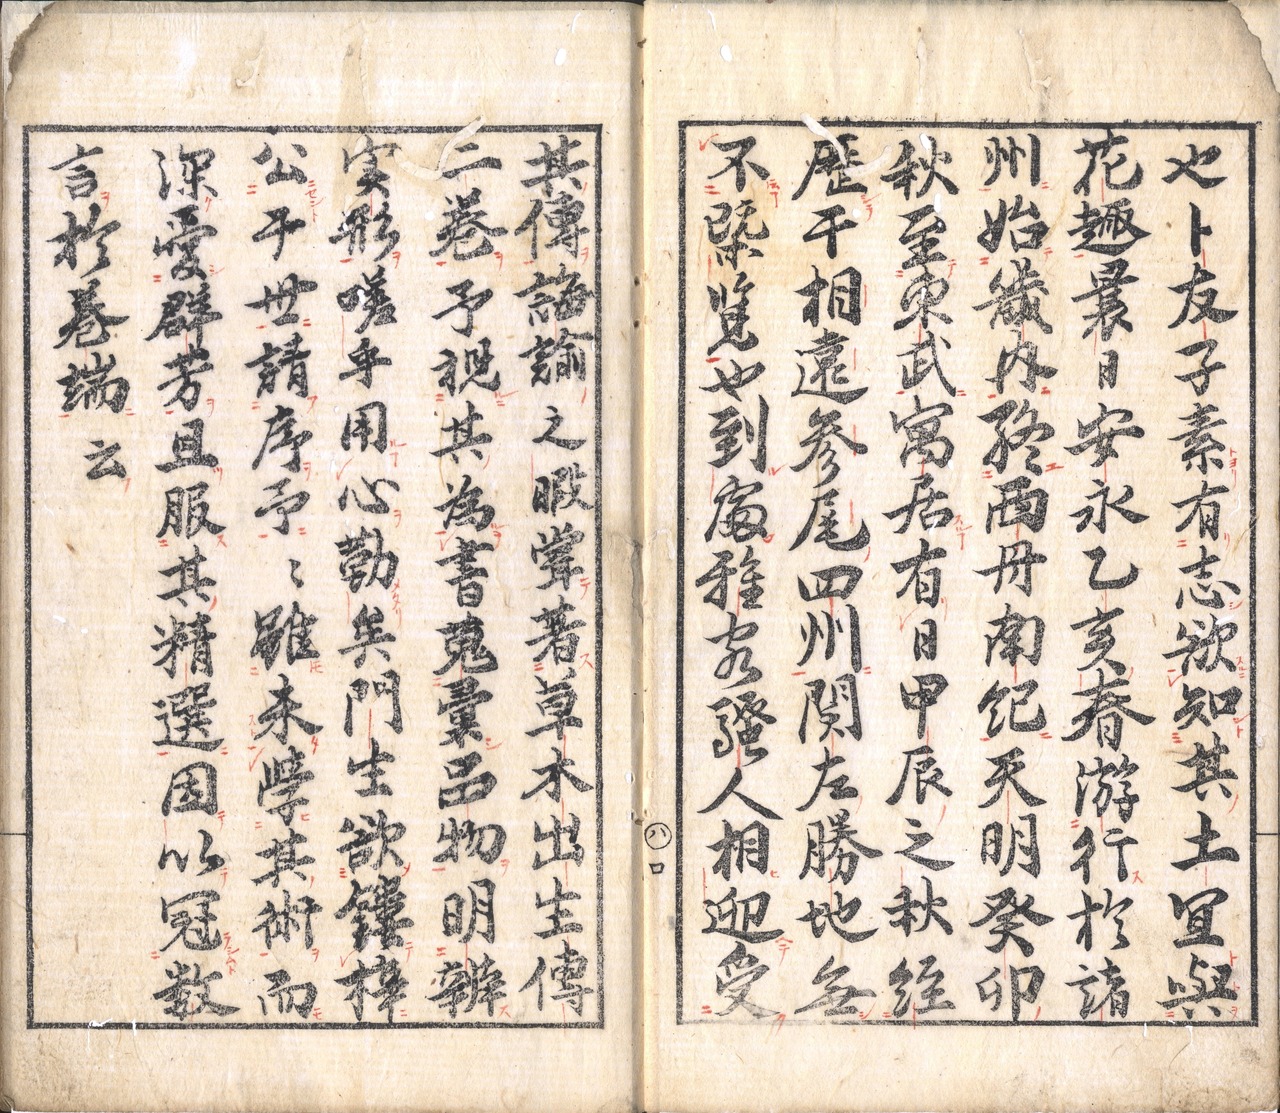 也卜友子素有志欲知其土宜與
花趣曩日安永乙亥春游行於諸
州始畿内終両丹南紀天明癸卯
秋至東武寓居有日甲辰之秋経
歴干相遠参尾四州関左勝地無
不既覧也到處雅客騒人相迎受
其傳誨諭之暇嘗著草木出生傳
二巻予視其為書蒐彙品物明辨
実形嗟乎用心勤矣門生欲鏤梓
公于世請序予〻雖未学其術而
深愛群芳且服其精選因以冠数
言於巻端云
八 口